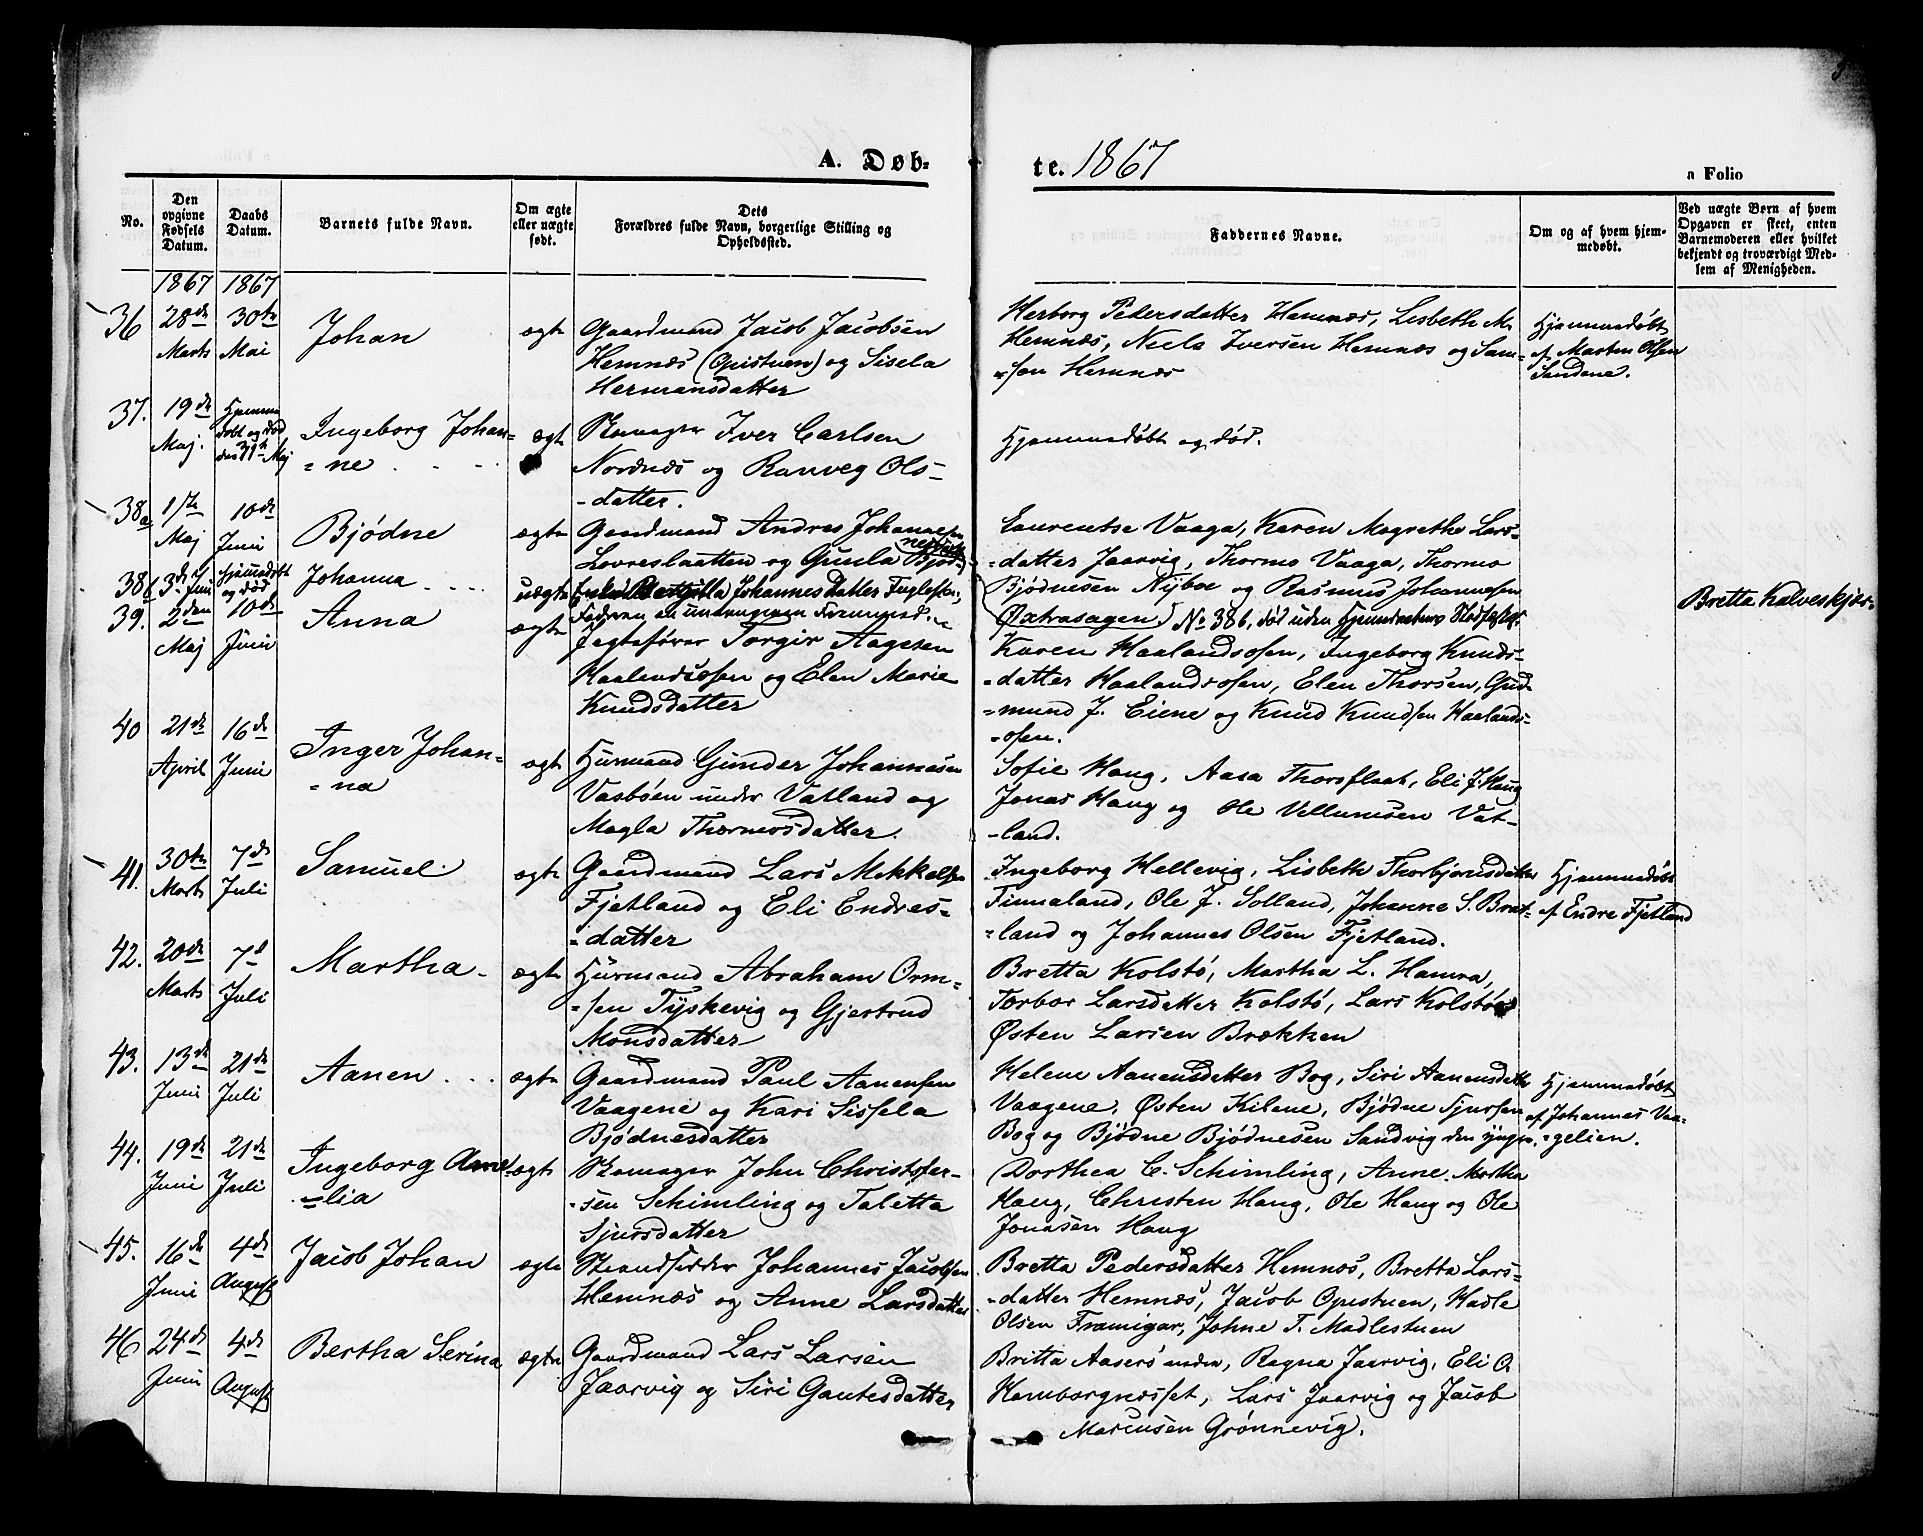 A. Døb=
te. 1867
a Folio
No.
Den opgivne Fødsels Datum.
Daabs Datum.
Barnets fulde Navn.
Om ægte eller uægte født.
Dets Forældres fulde Navn, borgerlige Stilling og Opholdssted.
Faddernes Navne.
Om og af hvem hjemmedøbt.
Ved uægte Børn af hvem Opgaven er skeet, enten Barnemoderen eller hvilket bekjendt og troværdigt Medlem af Menigheden.
1867 1867
36 28de Marts 30te Mai Johan ægte
Gaardmand Jacob Jacobsen
Hemnæs (Opistuen) og Sisela
Hermansdatter
Herborg Pedersdatter Hemnæs, Lisbeth M.
Hemnæs, Niels Iversen Hemnæs og Sam-
-sen Hemnæs
Hjemmedøbt
af Marten Olsen
Sandene.
37. 19de Maj. Hjemme
døbt og død
den 31te Maj
Ingeborg Johan=
=ne ægte
Skomager Iver Carlsen
Nordnæs og Ranveg Ols-
-datter.
Hjemmedøbt og død.
38a 1ste Maj 10de Juni Bjødne ægte
Gaardmand Andreas Johannesen
Lovreslaatten og Gunla Bjød-
nesdatter
Laurentse Vaaga, Karen Magrethe Lars-
-datter Jaarvig, Thormo Vaaga, Thormo
Bjødnesen Nijboe og Rasmus Johannesen
Øxtrasagen.
38b 3de Juni hjemmedøbt
og død
Johanna uægte
Enke Johannesdatter
Faderen en
No 38b, død uden
Bretta Kalveskjær
39. 2den Maj 10de Juni Anna ægte
Jegtefører Torgir Aagesen
Haalandsosen og Elen Marie
Knudsdatter
Karen Haalandsosen, Ingeborg Knuds-
-datter Haalandsosen, Elen Thorsen, Gud-
=mund J. Eiene og Knud Knudsen Haalands-
-osen.
40 21de April 16de Juni Inger Johan=
=na ægte
Huusmand Gunder Johannesen
Vasbøen under Vatland og
Magla Thormosdatter
Sofie Haug, Aasa Thorsflaat, Eli J. Haug
Jonas Haug og Ole Vellumsen Vat-
-land.
41. 30te Marts 7de Juli Samuel ægte
Gaardmand Lars Mekkelsen
Fjetland og Eli Endres=
=datter
Ingeborg Hellevig, Lisbeth Thorbjornsdatter
Finnaland, Ole J. Solland, Johanne S. Brat-
-land og Johannes Olsen Fjetland.
Hjemmedøbt
af Endre Fjetland
42. 20de Marts 7d Juli Martha ægte
Huusmand Abraham Orm=
=sen Tyskevig og Gjertrud
Monsdatter
Bretta Kolstø, Martha L. Hamra,
Torbor Larsdatter Kolstø, Lars Kolstø og
Østen Larsen Brækken
43. 13de Juni 21de Juli Aanen ægte
Gaardmand Paul Aanensen
Vaagene og Kari Sissela
Bjødnesdatter
Helene Aanensdatter Bog, Siri Aanensdatter
Vaagene, Østen Kilene, Bjødne Sjursen
Bog og Bjødne Bjødnesen Sandvig den yngre.
Hjemmedøbt
af Johannes Vaa-
-gelien.
44. 19de Juni 21de Juli Ingeborg Ame
=lia ægte
Skomager John Christofer-
-sen Schimling og Taletta
Sjursdatter
Dorthea C. Schimling, Anne Martha
Haug, Christen Haug, Ole Haug og Ole
Jonasen Haug
45. 16de Juni 4de August Jacob Johan ægte
Strandsidder Johannes Jacobsen
Hemnæs og Anne Larsdatter
Bretta Pedersdatter Hemnæs, Bretta Lars-
-datter Hemnæs, Jacob Opistuen, Hadle
Olsen Framigar, Johne T. Madlestuen
46 24de Juni 4de August Bertha Serina ægte
Gaardmand Lars Larsen
Jaarvig og Siri Gautesdatter
Britta Aaserø, Ragna Jaarvig, Eli O.
Hamborgnæsset, Lars Jaarvig og Jacob
Marcusen Grønnevig.